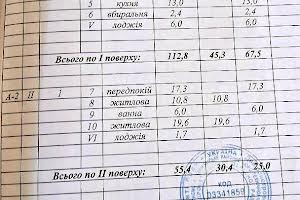 5 кухня 13,0 13,0
6 вбиральня 2,4 2,4
V лоджія 6,0 6,0
Всього по I поверху: 112,8 45,3 67,5
А-2 II 1 7 передпокій 17,3 17,3
8 житлова 10,8 10,8
9 ванна 6,0 6,0
10 житлова 19,6 19,6
VI лоджія 1,7 1,7
Всього по II поверху: 55,4 30,4 25,0
УКРАЇНА
КОД
03341859